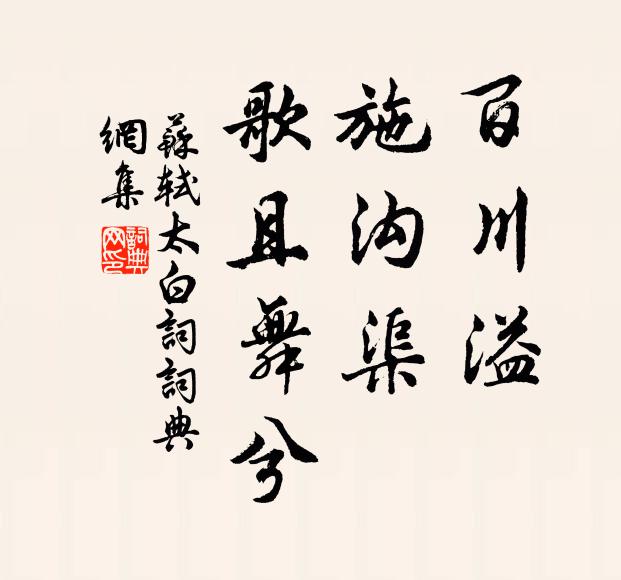 百川溢
施沟渠
歌且舞兮
蘇軾太白詞詞典
網集
詞典
网印